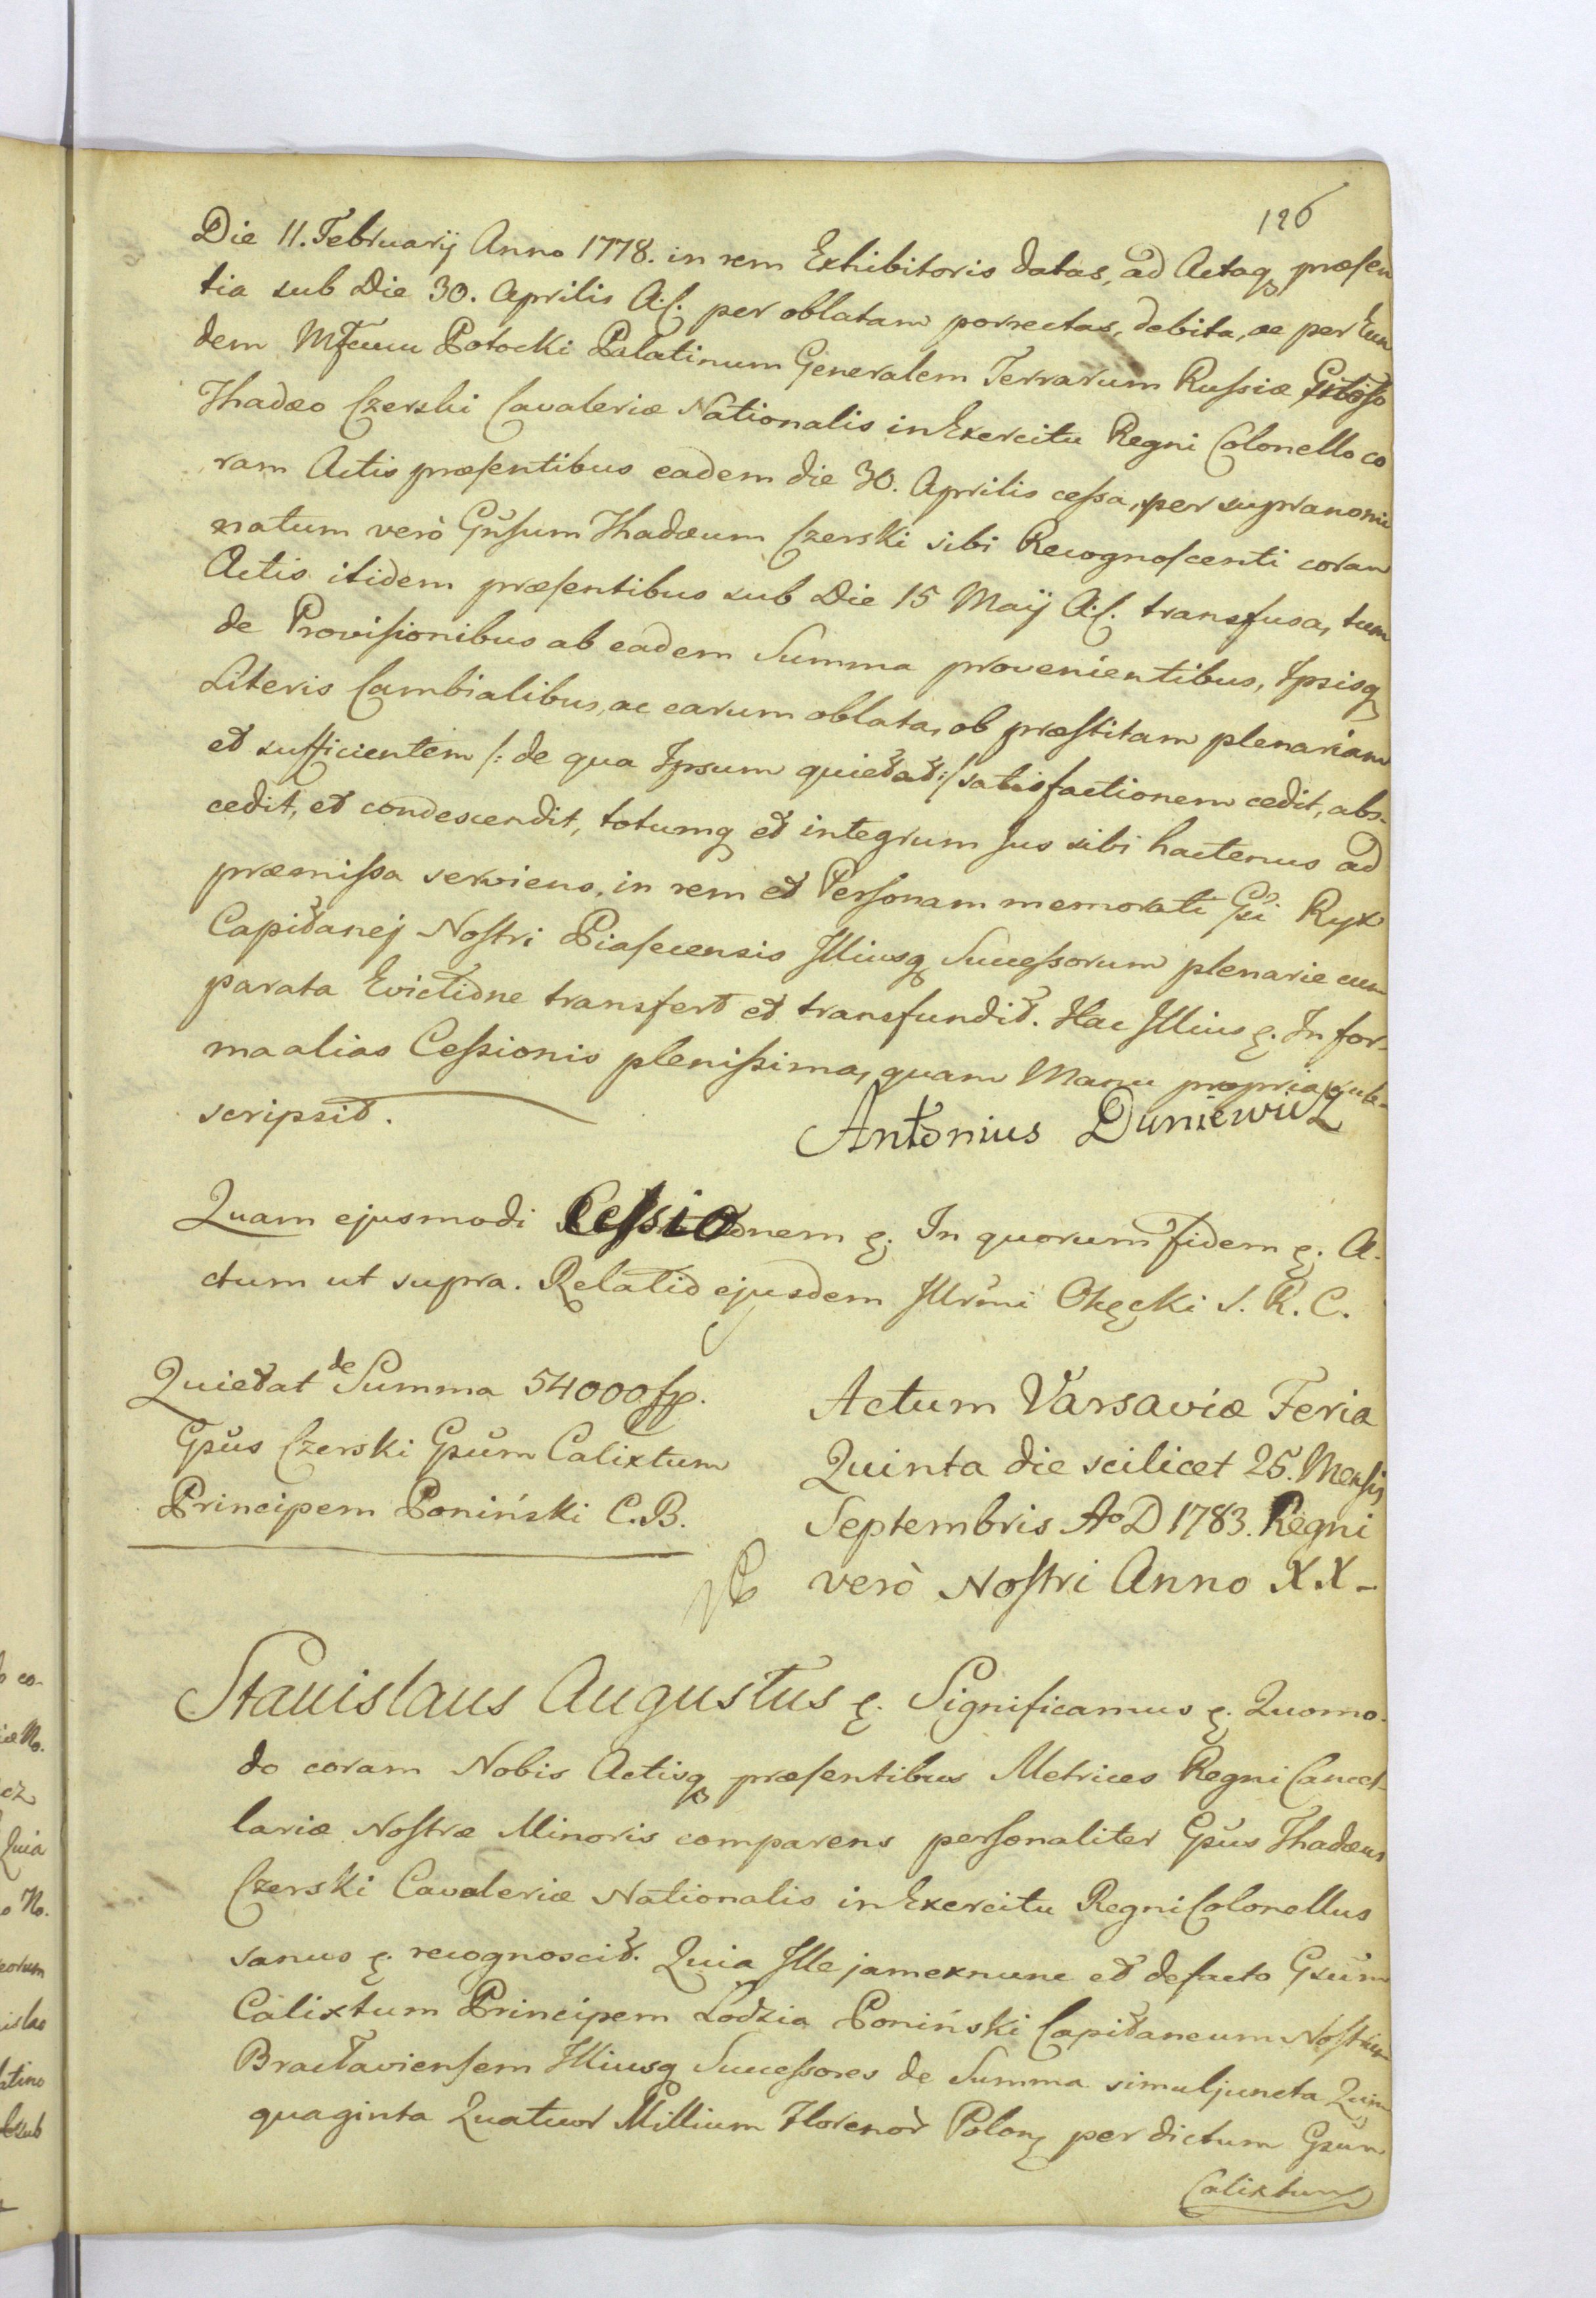 126
Die 11. Februarij Anno 1778. in rem Exhibitoris datas, ad Actaq præsen
tia sub Die 30. Aprilis A. C. per oblatam porrectas, debita, ac per Eun
dem Potocki Palatinum Generalem Terrarum Russiæ
Thadæo Czerski Cavaleriæ Nationalis in Exercitu Regni Colonello co
ram Actis præsentibus eadem die 30. Aprilis cessa, per supranomi
natum verò Gnsum Thadæum Czerski sibi Recognoscenti coram
Actis itidem præsentibus sub Die 15 Maij A. C. transfusa, tum
de Provisionibus ab eadem Summa provenientibus, Ipsisq
Literis Cambialibus, ac earum oblata, ob præstitam plenariam
et sufficientem /: de qua Ipsum quietat :/ satisfactionem cedit, abs-
cedit, et condescendit, totumq et integrum Jus sibi hactenus ad
præmissa serviens, in rem et Personam memorati Gsi Ryx
Capitanej Nostri Piasecensis Illiusq Successorum plenarie cum
parata Evictione transfert et transfundit. Hac Illius &. In for-
ma alias Cessionis plenissima, quam Manu propria sub-
scripsit.
Antonius Duniewicz
Quam ejusmodi Cessionem &. In quorum fidem &. A-
ctum ut supra. Relatio ejusdem Illrmi Okęcki S. R. C.
Quietat de Summa 54000 fp.
Gsus Czerski Gsum Calixtum
Principem Poniński C. B.
Actum Varsaviæ Feria
Quinta die scilicet 25. Mensis
Septembris Ao D 1783. Regni
verò Nostri Anno XX-
Stanislaus Augustus &. Significamus &. Quomo-
do coram Nobis Actisq præsentibus Metrices Regni Cancel-
lariæ Nostræ Minoris comparens personaliter Gsus Thadæus
Czerski Cavaleriæ Nationalis in Exercitu Regni Colonellus
sanus &. recognoscit. Quia Ille jam exnunc et defacto Gsum
Calixtum Principem Lodzia Poniński Capitaneum Nostrum
Bractaviensem Illiusq Successores de Summa simul juncta Quin
quaginta Quatuor Millium Florenor Polon per dictum Gsum
Calixtum